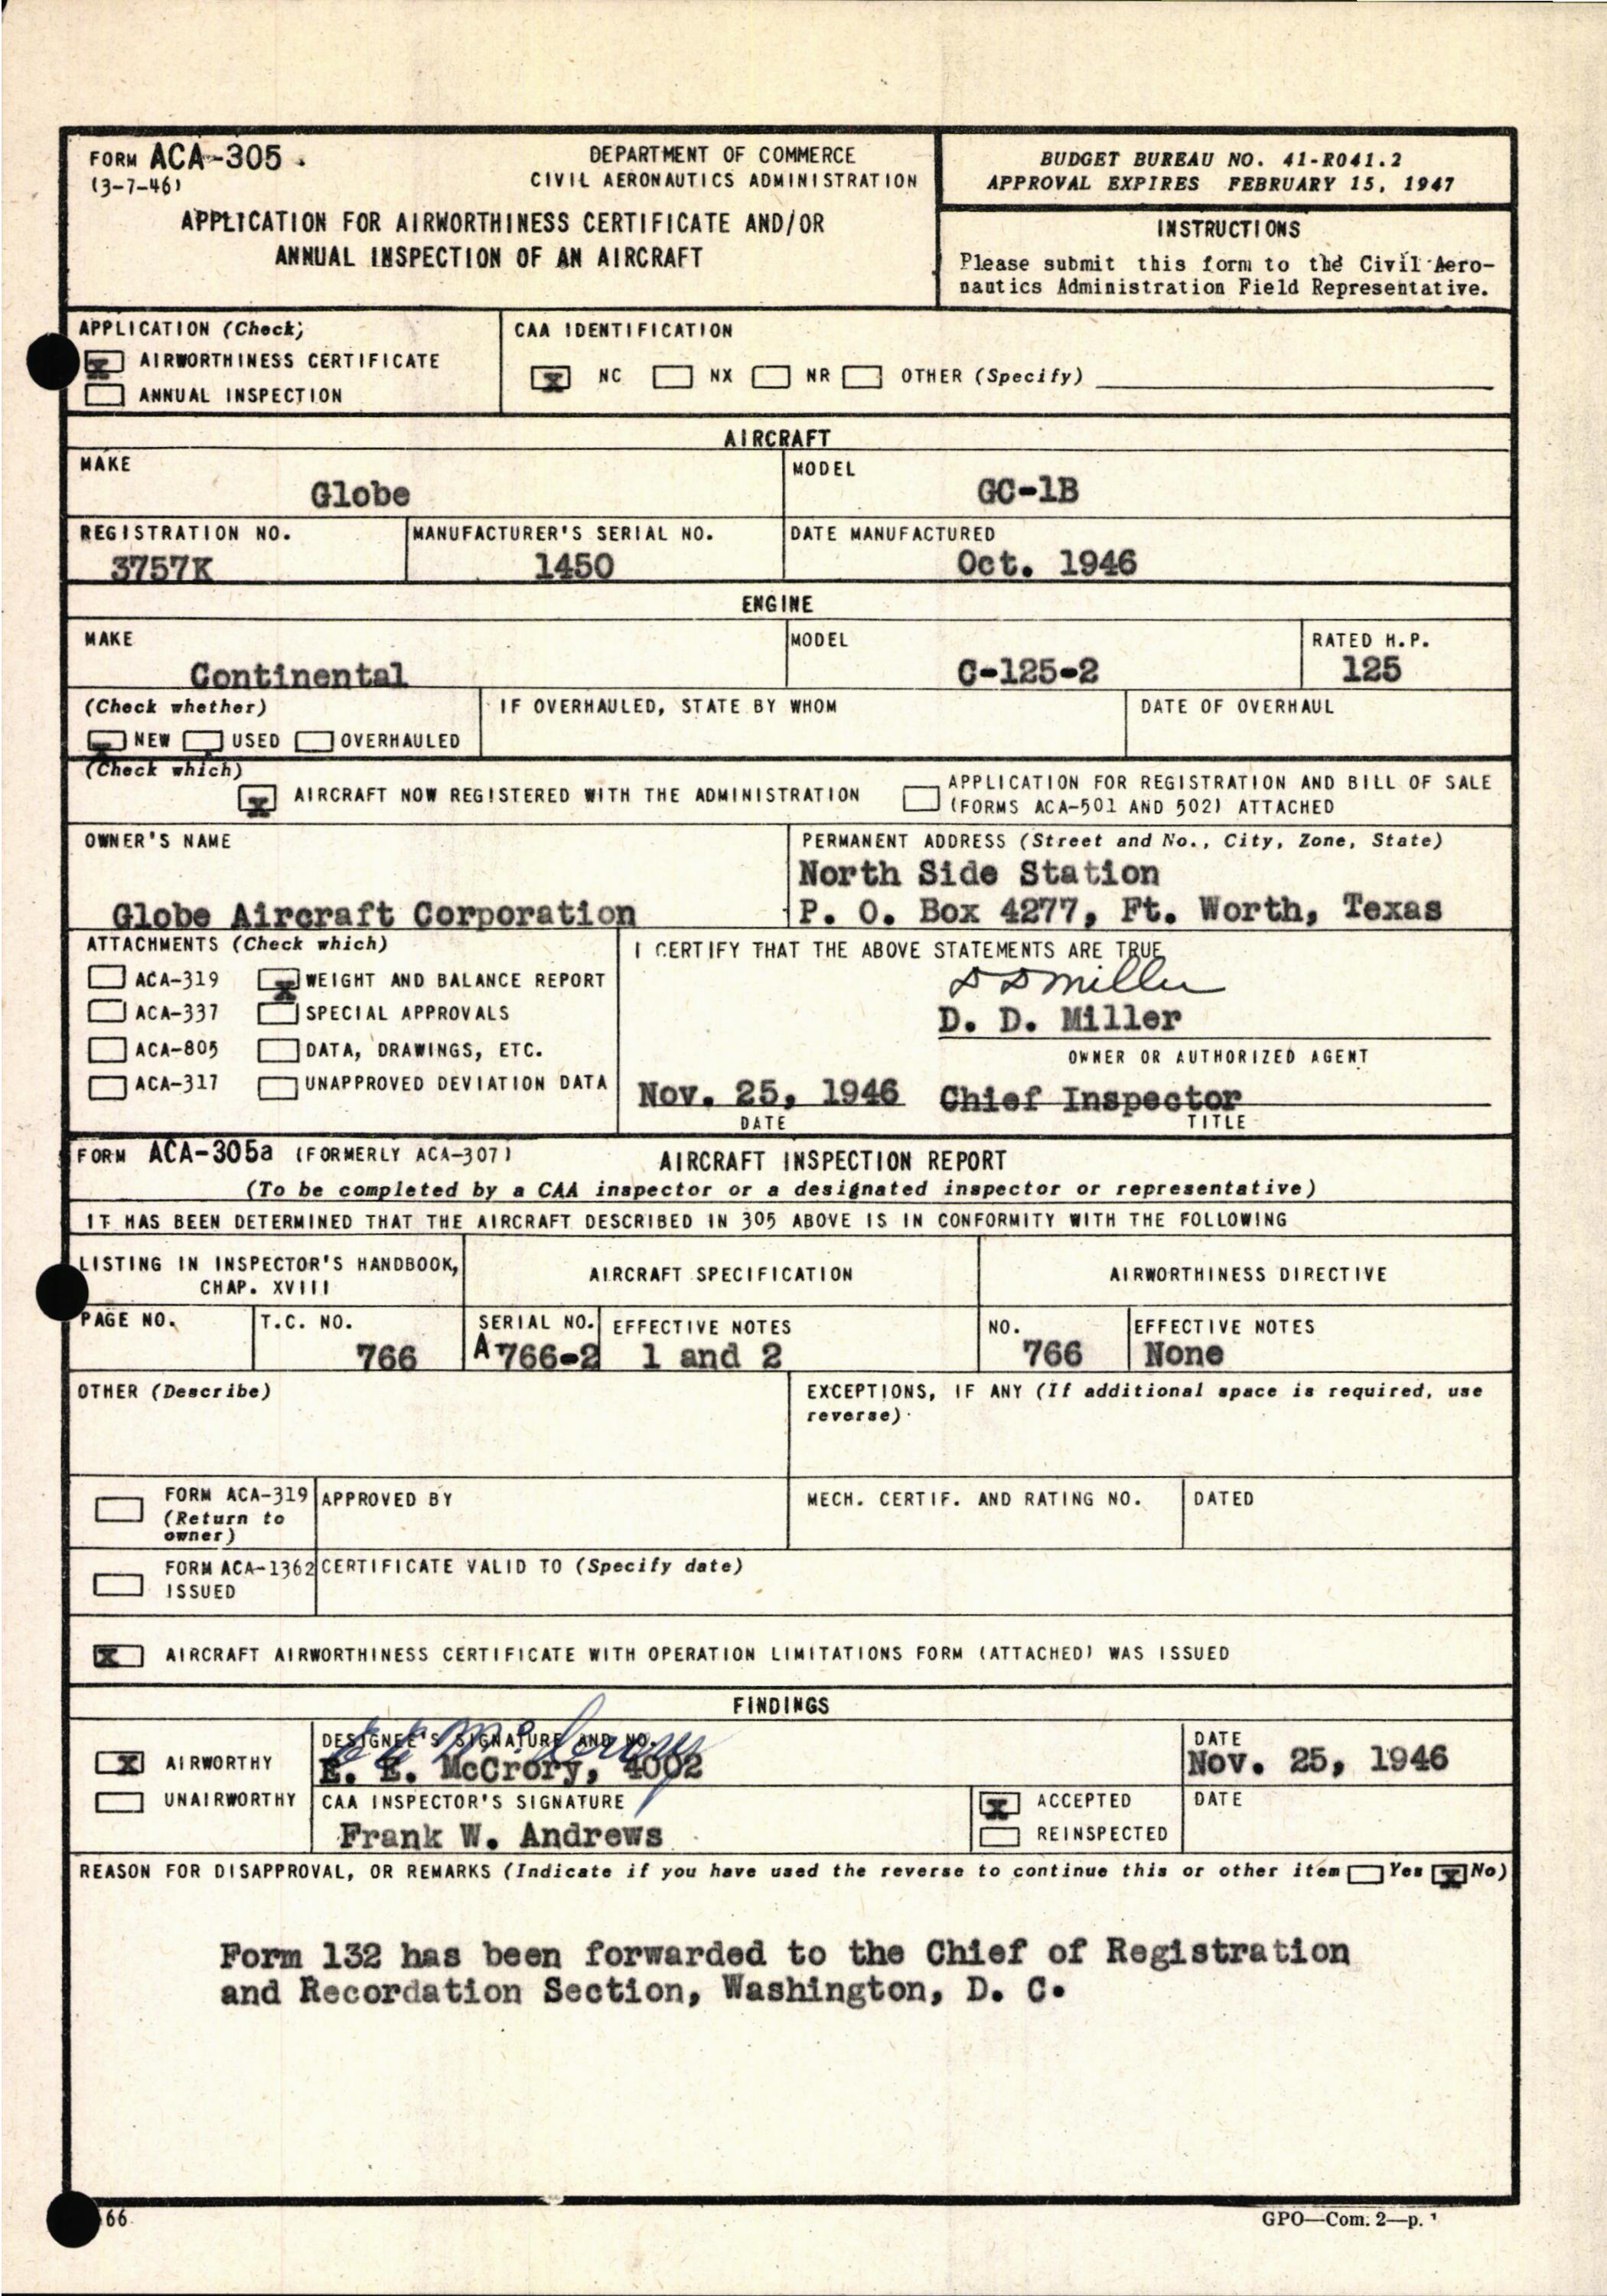 FORM ACA-305
(3-7-46)
DEPARTMENT OF COMMERCE
CIVIL AERONAUTICS ADMINISTRATION
APPLICATION FOR AIRWORTHINESS CERTIFICATE AND/OR
ANNUAL INSPECTION OF AN AIRCRAFT
BUDGET BUREAU NO. 41-R041.2
APPROVAL EXPIRES FEBRUARY 15, 1947
INSTRUCTIONS
Please submit this form to the Civil Aero-
nautics Administration Field Representative.
APPLICATION (Check)
X AIRWORTHINESS CERTIFICATE
ANNUAL INSPECTION
CAA IDENTIFICATION
X NC NX NR OTHER (Specify)
AIRCRAFT
MAKE
Globe
MODEL
GC-1B
REGISTRATION NO.
3757K
MANUFACTURER'S SERIAL NO.
1450
DATE MANUFACTURED
Oct. 1946
ENGINE
MAKE
Continental
MODEL
C-125-2
RATED H.P.
125
(Check whether)
NEW USED OVERHAULED
IF OVERHAULED, STATE BY WHOM
DATE OF OVERHAUL
(Check which)
X AIRCRAFT NOW REGISTERED WITH THE ADMINISTRATION
APPLICATION FOR REGISTRATION AND BILL OF SALE
(FORMS ACA-501 AND 502) ATTACHED
OWNER'S NAME
Globe Aircraft Corporation
PERMANENT ADDRESS (Street and No., City, Zone, State)
North Side Station
P. O. Box 4277, Ft. Worth, Texas
ATTACHMENTS (Check which)
ACA-319 X WEIGHT AND BALANCE REPORT
ACA-337 SPECIAL APPROVALS
ACA-805 DATA, DRAWINGS, ETC.
ACA-317 UNAPPROVED DEVIATION DATA
I CERTIFY THAT THE ABOVE STATEMENTS ARE TRUE
D D Miller
D. D. Miller
OWNER OR AUTHORIZED AGENT
Nov. 25, 1946 Chief Inspector
DATE TITLE
FORM ACA-305a (FORMERLY ACA-307) AIRCRAFT INSPECTION REPORT
(To be completed by a CAA inspector or a designated inspector or representative)
IT HAS BEEN DETERMINED THAT THE AIRCRAFT DESCRIBED IN 305 ABOVE IS IN CONFORMITY WITH THE FOLLOWING
LISTING IN INSPECTOR'S HANDBOOK,
CHAP. XVIII
AIRCRAFT SPECIFICATION
AIRWORTHINESS DIRECTIVE
PAGE NO.
T.C. NO.
766
SERIAL NO.
A-766-2
EFFECTIVE NOTES
1 and 2
NO.
766
EFFECTIVE NOTES
None
OTHER (Describe)
EXCEPTIONS, IF ANY (If additional space is required, use
reverse)
FORM ACA-319
(Return to
owner)
APPROVED BY
MECH. CERTIF. AND RATING NO.
DATED
FORM ACA-1362
ISSUED
CERTIFICATE VALID TO (Specify date)
X AIRCRAFT AIRWORTHINESS CERTIFICATE WITH OPERATION LIMITATIONS FORM (ATTACHED) WAS ISSUED
FINDINGS
X AIRWORTHY
UNAIRWORTHY
DESIGNEE'S SIGNATURE AND NO.
E. E. McCrory, 4002
DATE
Nov. 25, 1946
CAA INSPECTOR'S SIGNATURE
Frank W. Andrews
X ACCEPTED
REINSPECTED
DATE
REASON FOR DISAPPROVAL, OR REMARKS (Indicate if you have used the reverse to continue this or other item Yes X No)
Form 132 has been forwarded to the Chief of Registration
and Recordation Section, Washington, D. C.
66
GPO—Com. 2—p.